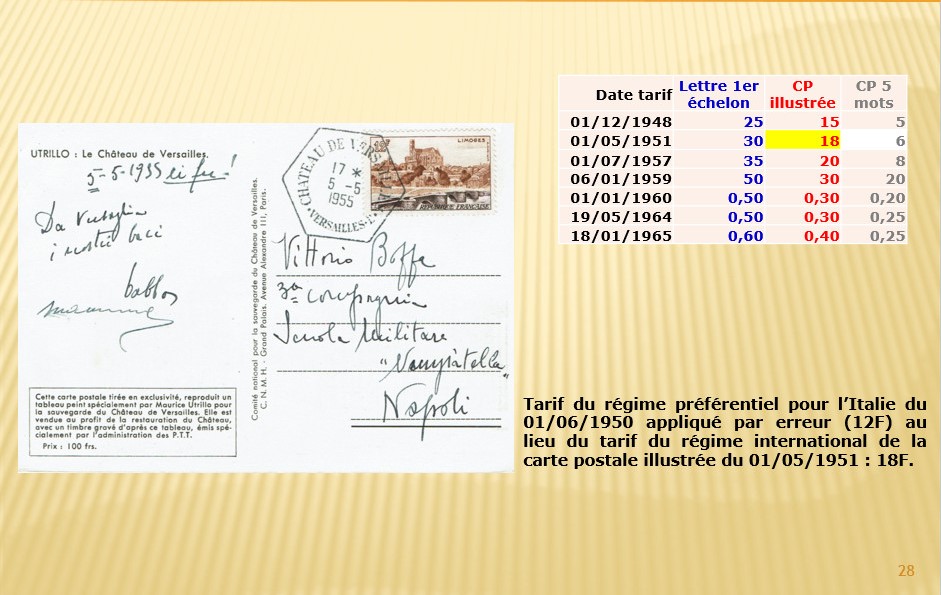 UTRILLO : Le Château de Versailles.
5-5-1955
Da Versaglia
i nostri baci
babbo
CHATEAU DE VERSAILLES
17 *
5 -5
1955
VERSAILLES
LIMOGES
REPUBLIQUE FRANÇAISE
Vittorio Boffa
3a Compagnia
Scuola Militare
"Nunziatella"
Napoli
Comité national pour la sauvegarde du Château de Versailles.
C. N. M. H. - Grand Palais. Avenue Alexandre III, Paris.
Cette carte postale tirée en exclusivité, reproduit un
tableau peint spécialement par Maurice Utrillo pour
la sauvegarde du Château de Versailles. Elle est
vendue au profit de la restauration du Château,
avec un timbre gravé d'après ce tableau, émis spé-
cialement par l'administration des P.T.T.
Prix : 100 frs.
Date tarif Lettre 1er échelon CP illustrée CP 5 mots
01/12/1948 25 15 5
01/05/1951 30 18 6
01/07/1957 35 20 8
06/01/1959 50 30 20
01/01/1960 0,50 0,30 0,20
19/05/1964 0,50 0,30 0,25
18/01/1965 0,60 0,40 0,25
Tarif du régime préférentiel pour l'Italie du
01/06/1950 appliqué par erreur (12F) au
lieu du tarif du régime international de la
carte postale illustrée du 01/05/1951 : 18F.
28